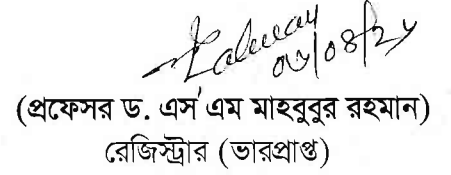 (প্রফেসর ড. এস এম মাহবুবুর রহমান)
রেজিস্ট্রার (ভারপ্রাপ্ত)